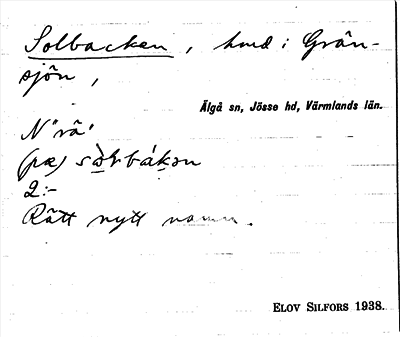 Solbacken, hmd i Grän-
sjön,
Älgå sn, Jösse hd, Värmlands län.
(pæ)
2:-
Rätt nytt namn.
ELOV SILFORS 1938.